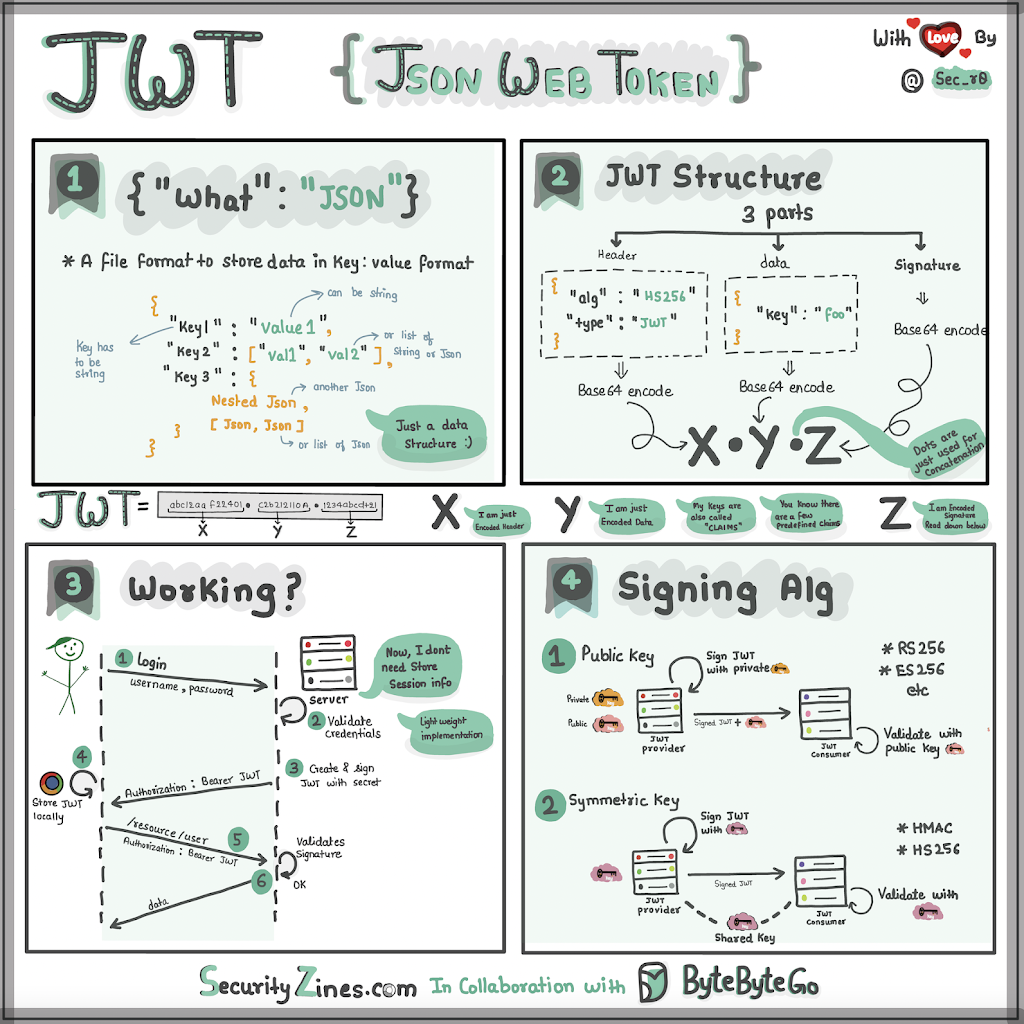 JWT
{ JSON WEB TOKEN }
With Love By
@ Sec_r0
1
{ "What": "JSON"}
* A file format to store data in Key: value format
{
"Key1" : "Value1",
"Key2" : ["val1", "val2"],
"Key3" : {
Nested Json,
[ Json, Json ]
}
}
can be string
Key has
to be
string
or list of
string or Json
another Json
or list of Json
Just a data
Structure :)
2
JWT Structure
3 parts
Header
data
Signature
{
"alg" : "HS256"
"type" : "JWT"
}
{
"key" : "foo"
}
Base64 encode
Base64 encode
Base64 encode
X.Y.Z
Dots are
just used for
concatenation
JWT =
X
Y
Z
X
I am just
Encoded Header
Y
I am just
Encoded Data
My Keys are
also called
"CLAIMS"
You know there
are a few
predefined claims
Z
I am Encoded
Signature
Read down below
3
Working?
1 Login
username, password
SERVER
Now, I dont
need Store
Session info
2 Validate
Credentials
Light weight
implementation
3 Create & sign
JWT with secret
4
Authorization : Bearer JWT
Store JWT
locally
/resource/user
5
Authorization : Bearer JWT
Validates
Signature
6
OK
data
4
Signing Alg
1 Public Key
Sign JWT
with private
* RS256
* ES256
etc
Private
Public
Signed JWT +
JWT
provider
JWT
Consumer
Validate with
public Key
2 Symmetric Key
Sign JWT
with
* HMAC
* HS256
Signed JWT
JWT
provider
JWT
Consumer
Validate with
Shared Key
SecurityZines.com In Collaboration with ByteByteGo